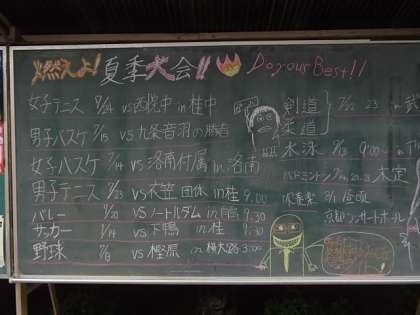 燃えよ！夏季大会！！ Do your Best！！
女子テニス 7/24 vs西院中 in桂中
男子バスケ 7/15 vs九条音羽の勝者
女子バスケ 7/14 vs洛南付属 in洛南
男子テニス 7/23 vs衣笠 団体 in桂 9:00
バレー 7/20 vsノートルダム in 9:30
サッカー 7/14 vs下鴨 in桂 9:30
野球 7/8 vs樫原 in横大路 3:00
剣道 7/22 23 in
柔道
水泳 9:00
バドミントン 未定
吹奏楽 8/1 昼頃
京都コンサートホール